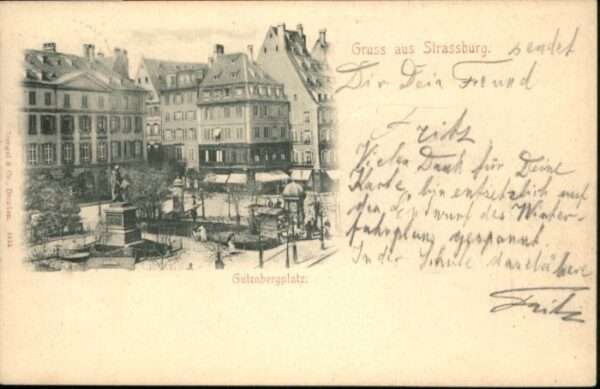 Gruss aus Strassburg. sendet
Dir Dein Freund
Fritz
Vielen Dank für Deine
Karte, bin entsetzlich auf
den Entwurf des Winter-
fahrplans gespannt.
In der Schule
Fritz
Gutenbergplatz.
& Co., Dresden.